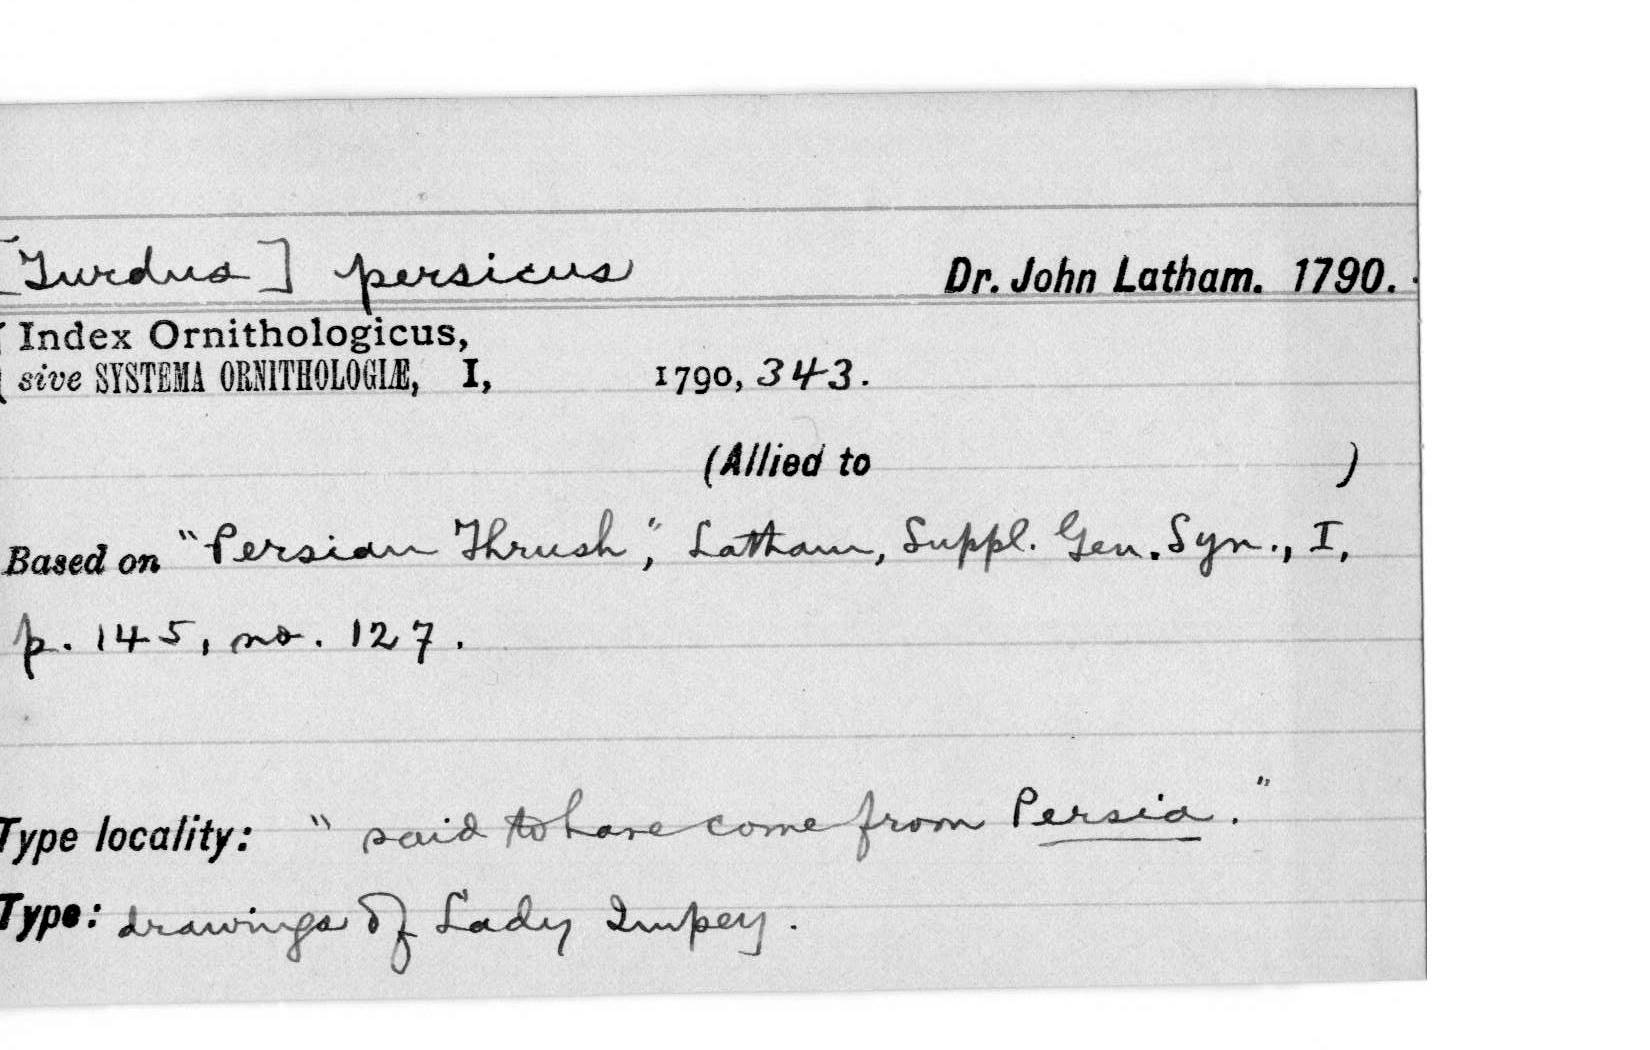 [Turdus] persicus Dr. John Latham. 1790.
Index Ornithologicus,
sive SYSTEMA ORNITHOLOGIÆ, I, 1790, 343.
(Allied to )
Based on "Persian Thrush", Latham, Suppl. Gen. Syn., I,
p. 145, no. 127.
Type locality: "said to have come from Persia."
Type: drawings of Lady Impey.